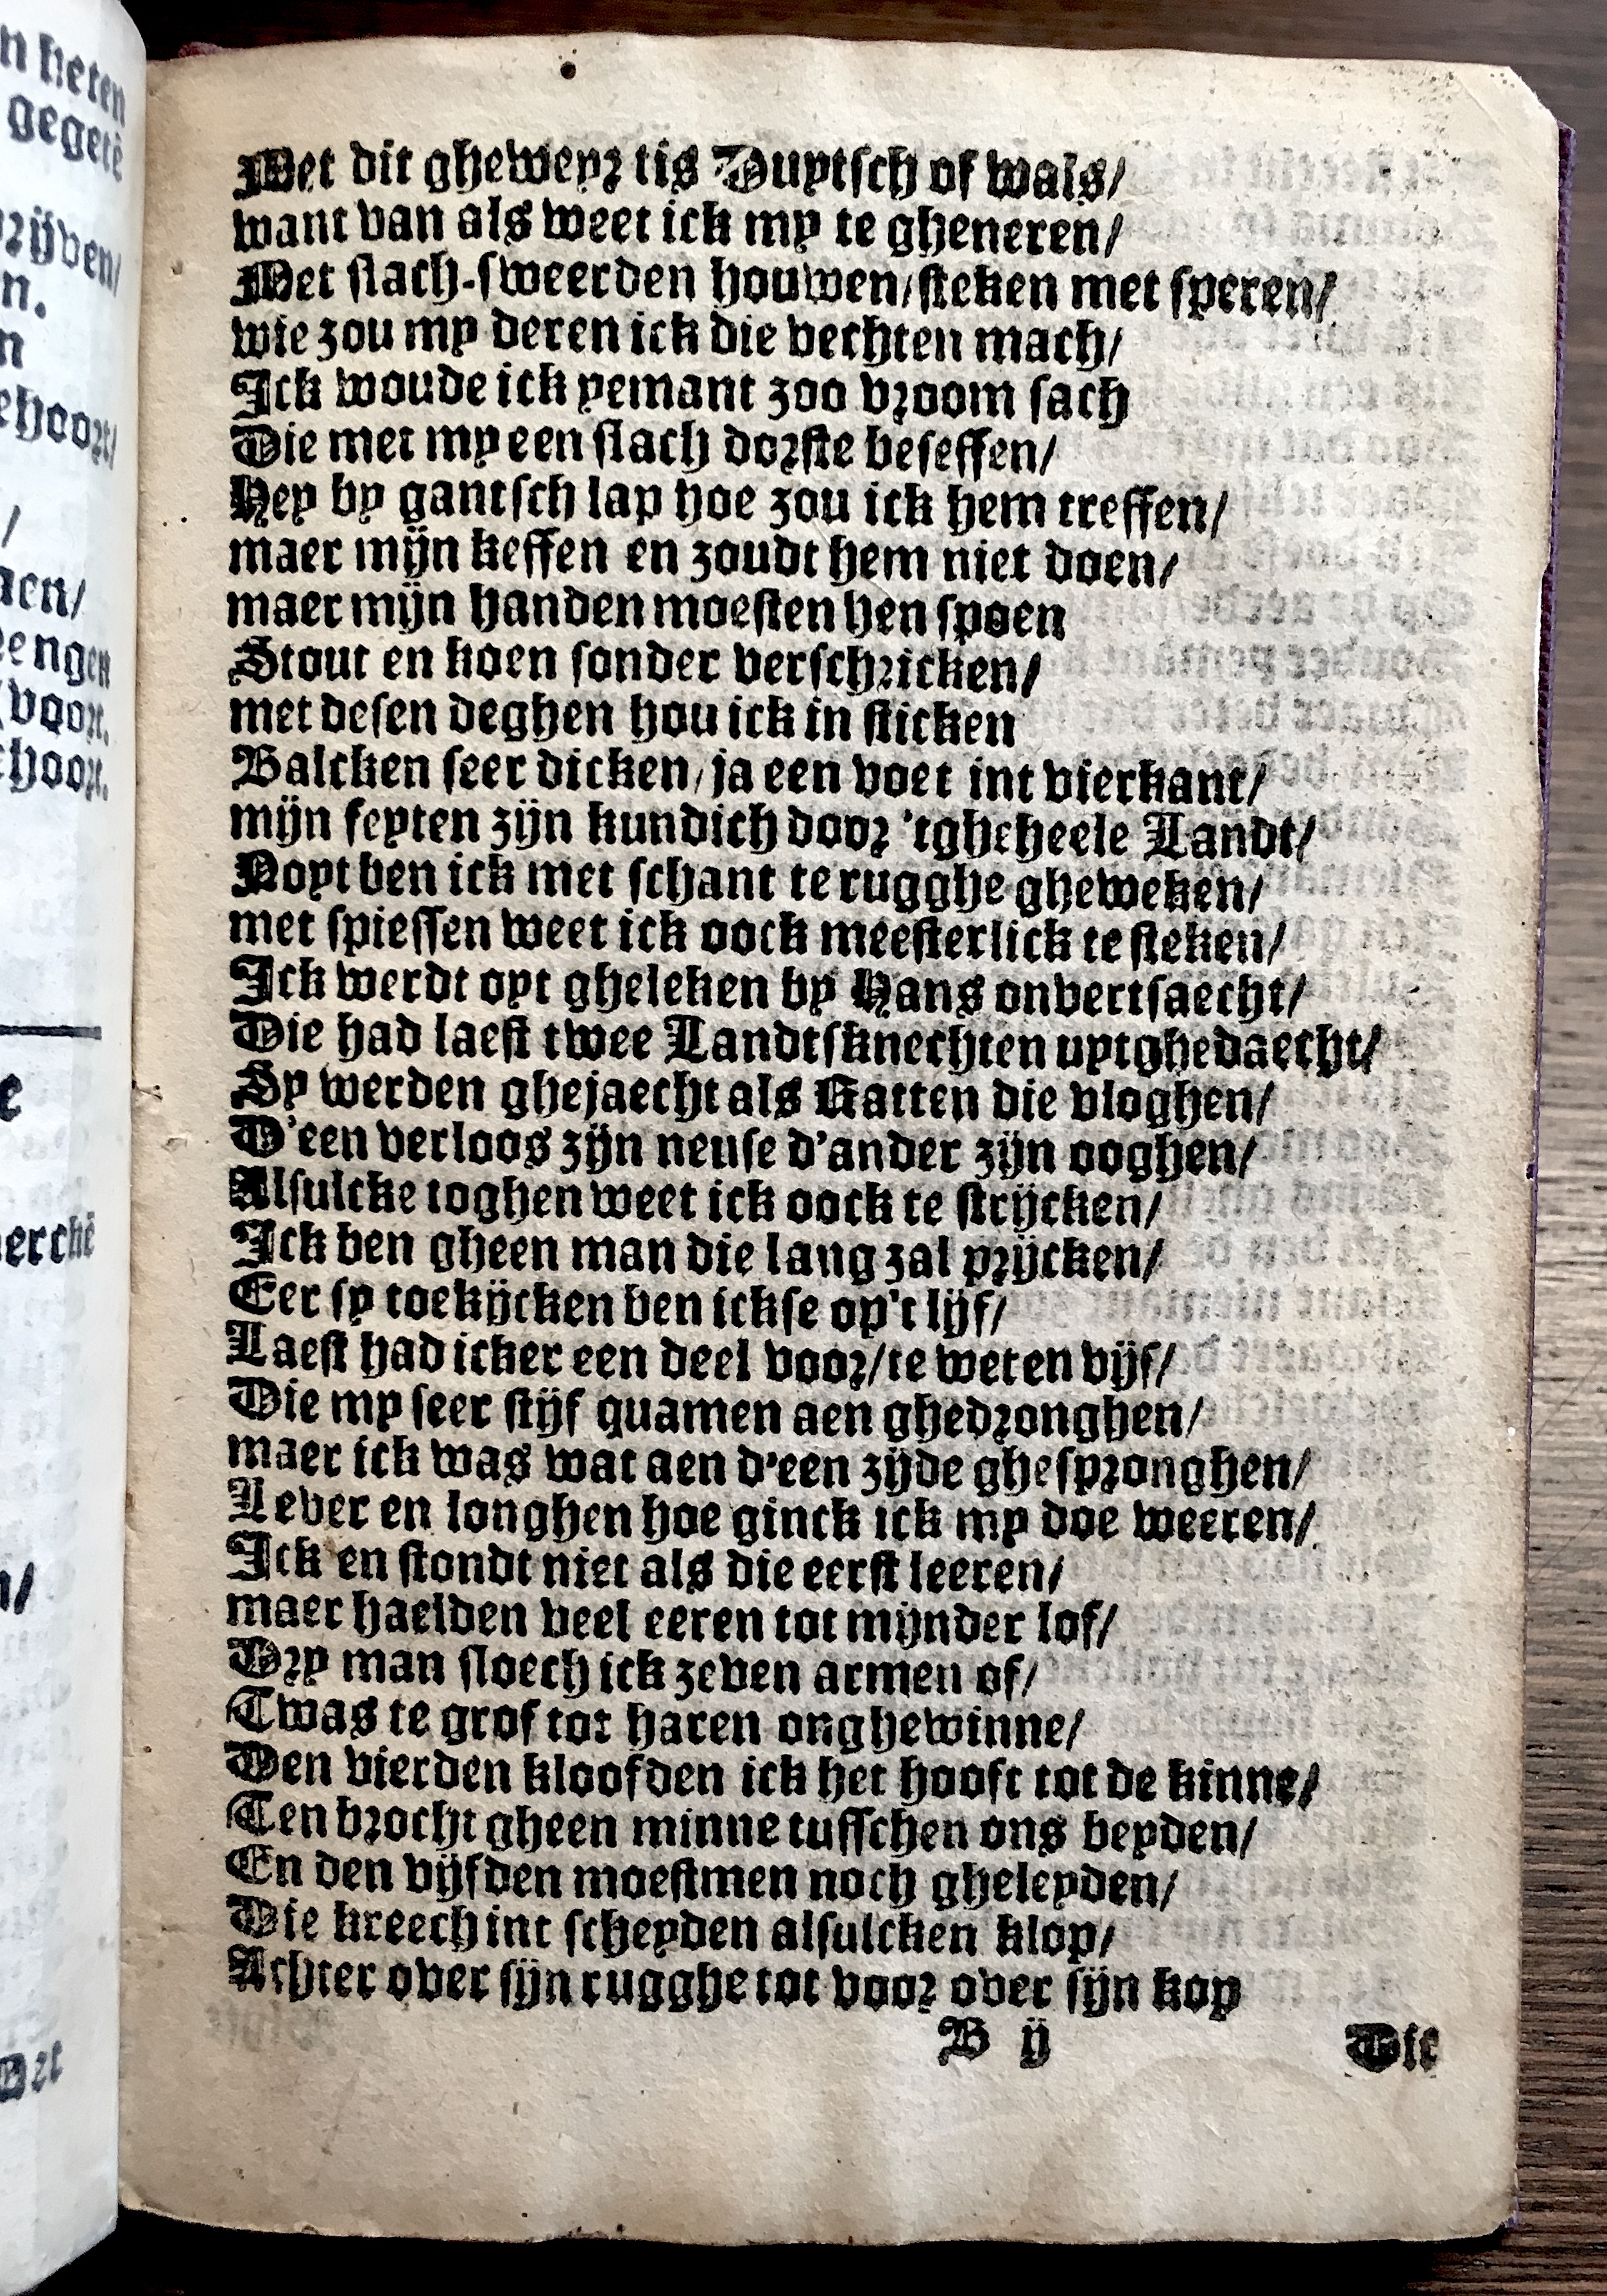 Met dit gheweyr tis Duytsch of wals/
want van als weet ick my te gheneren/
Met slach-sweerden houwen/steken met speren/
wie zou my deren ick die vechten mach/
Ick woude ick yemant zoo vroom sach
Die met my een slach dorste beseffen/
Hey by gantsch lap hoe zou ick hem treffen/
maer mijn keffen en zoudt hem niet doen/
maer mijn handen moesten hen spoen
Stout en koen sonder verschricken/
met desen deghen hou ick in sticken
Balcken seer dicken/ja een voet int vierkant/
mijn feyten zijn kundich door 'tgheheele Landt/
Noyt ben ick met schant te rugghe gheweken/
met spiessen weet ick oock meesterlick te steken/
Ick werdt oyt gheleken by Hans onvertsaecht/
Die had laest twee Landtsknechten uytghedaecht/
Sy werden ghejaecht als Katten die vloghen/
D'een verloos zijn neuse d'ander zijn ooghen/
Alsulcke toghen weet ick oock te strijcken/
Ick ben gheen man die lang zal prijcken/
Eer sy toekijcken ben ickse op't lijf/
Laest had icker een deel voor/te weten vijf/
Die my seer stijf quamen aen ghedronghen/
maer ick was wat aen d'een zijde ghespronghen/
Lever en longhen hoe ginck ick my doe weeren/
Ick en stondt niet als die eerst leeren/
maer haelden veel eeren tot mijnder lof/
Dry man sloech ick zeven armen of/
Twas te grof tot haren onghewinne/
Den vierden kloofden ick het hooft tot de kinne/
Ten brocht gheen minne tusschen ons beyden/
En den vijfden moestmen noch gheleyden/
Die kreech int scheyden alsulcken klop/
Achter over sijn rugghe tot voor over sijn kop
B ij Die
n heten
gegetē
rijven/
n.
n
ehoort/
/
aen/
eengen
voort.
choort.
e
erchē
n/
Met